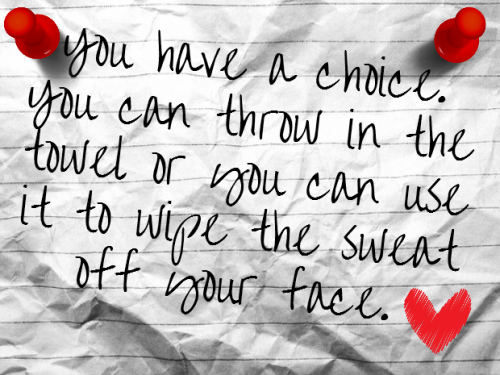 you have a choice.
you can throw in the
towel or you can use
it to wipe the sweat
off your face.